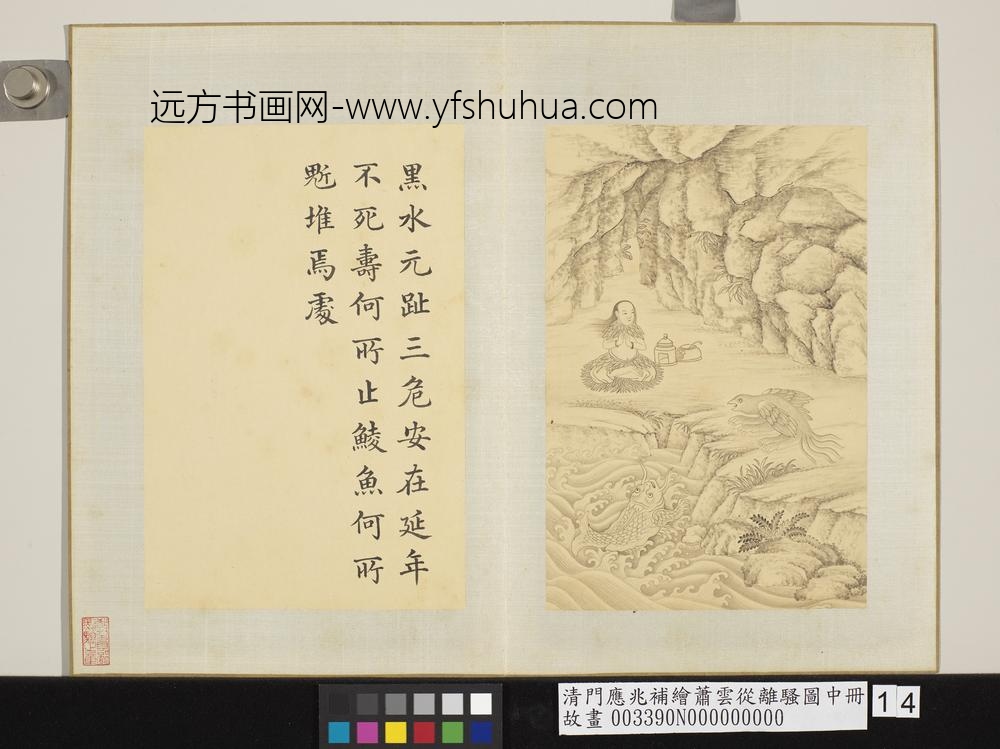 远方书画网-www.yfshuhua.com
黒水元趾三危安在延年
不死壽何所止鯪魚何所
鬿堆焉處
清門應兆補繪蕭雲從離騷圖中冊
故畫 003390N000000000
14